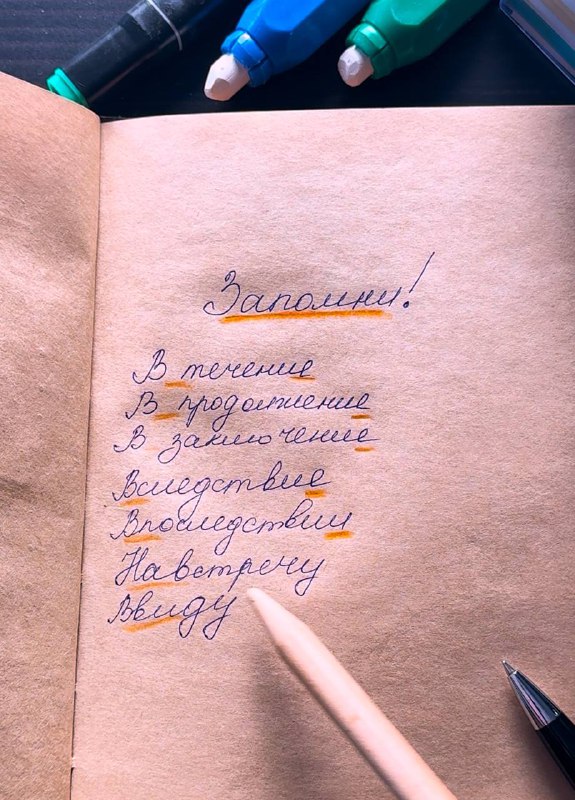 Запомни!
В течение
В продолжение
В заключение
Вследствие
Впоследствии
Навстречу
Ввиду